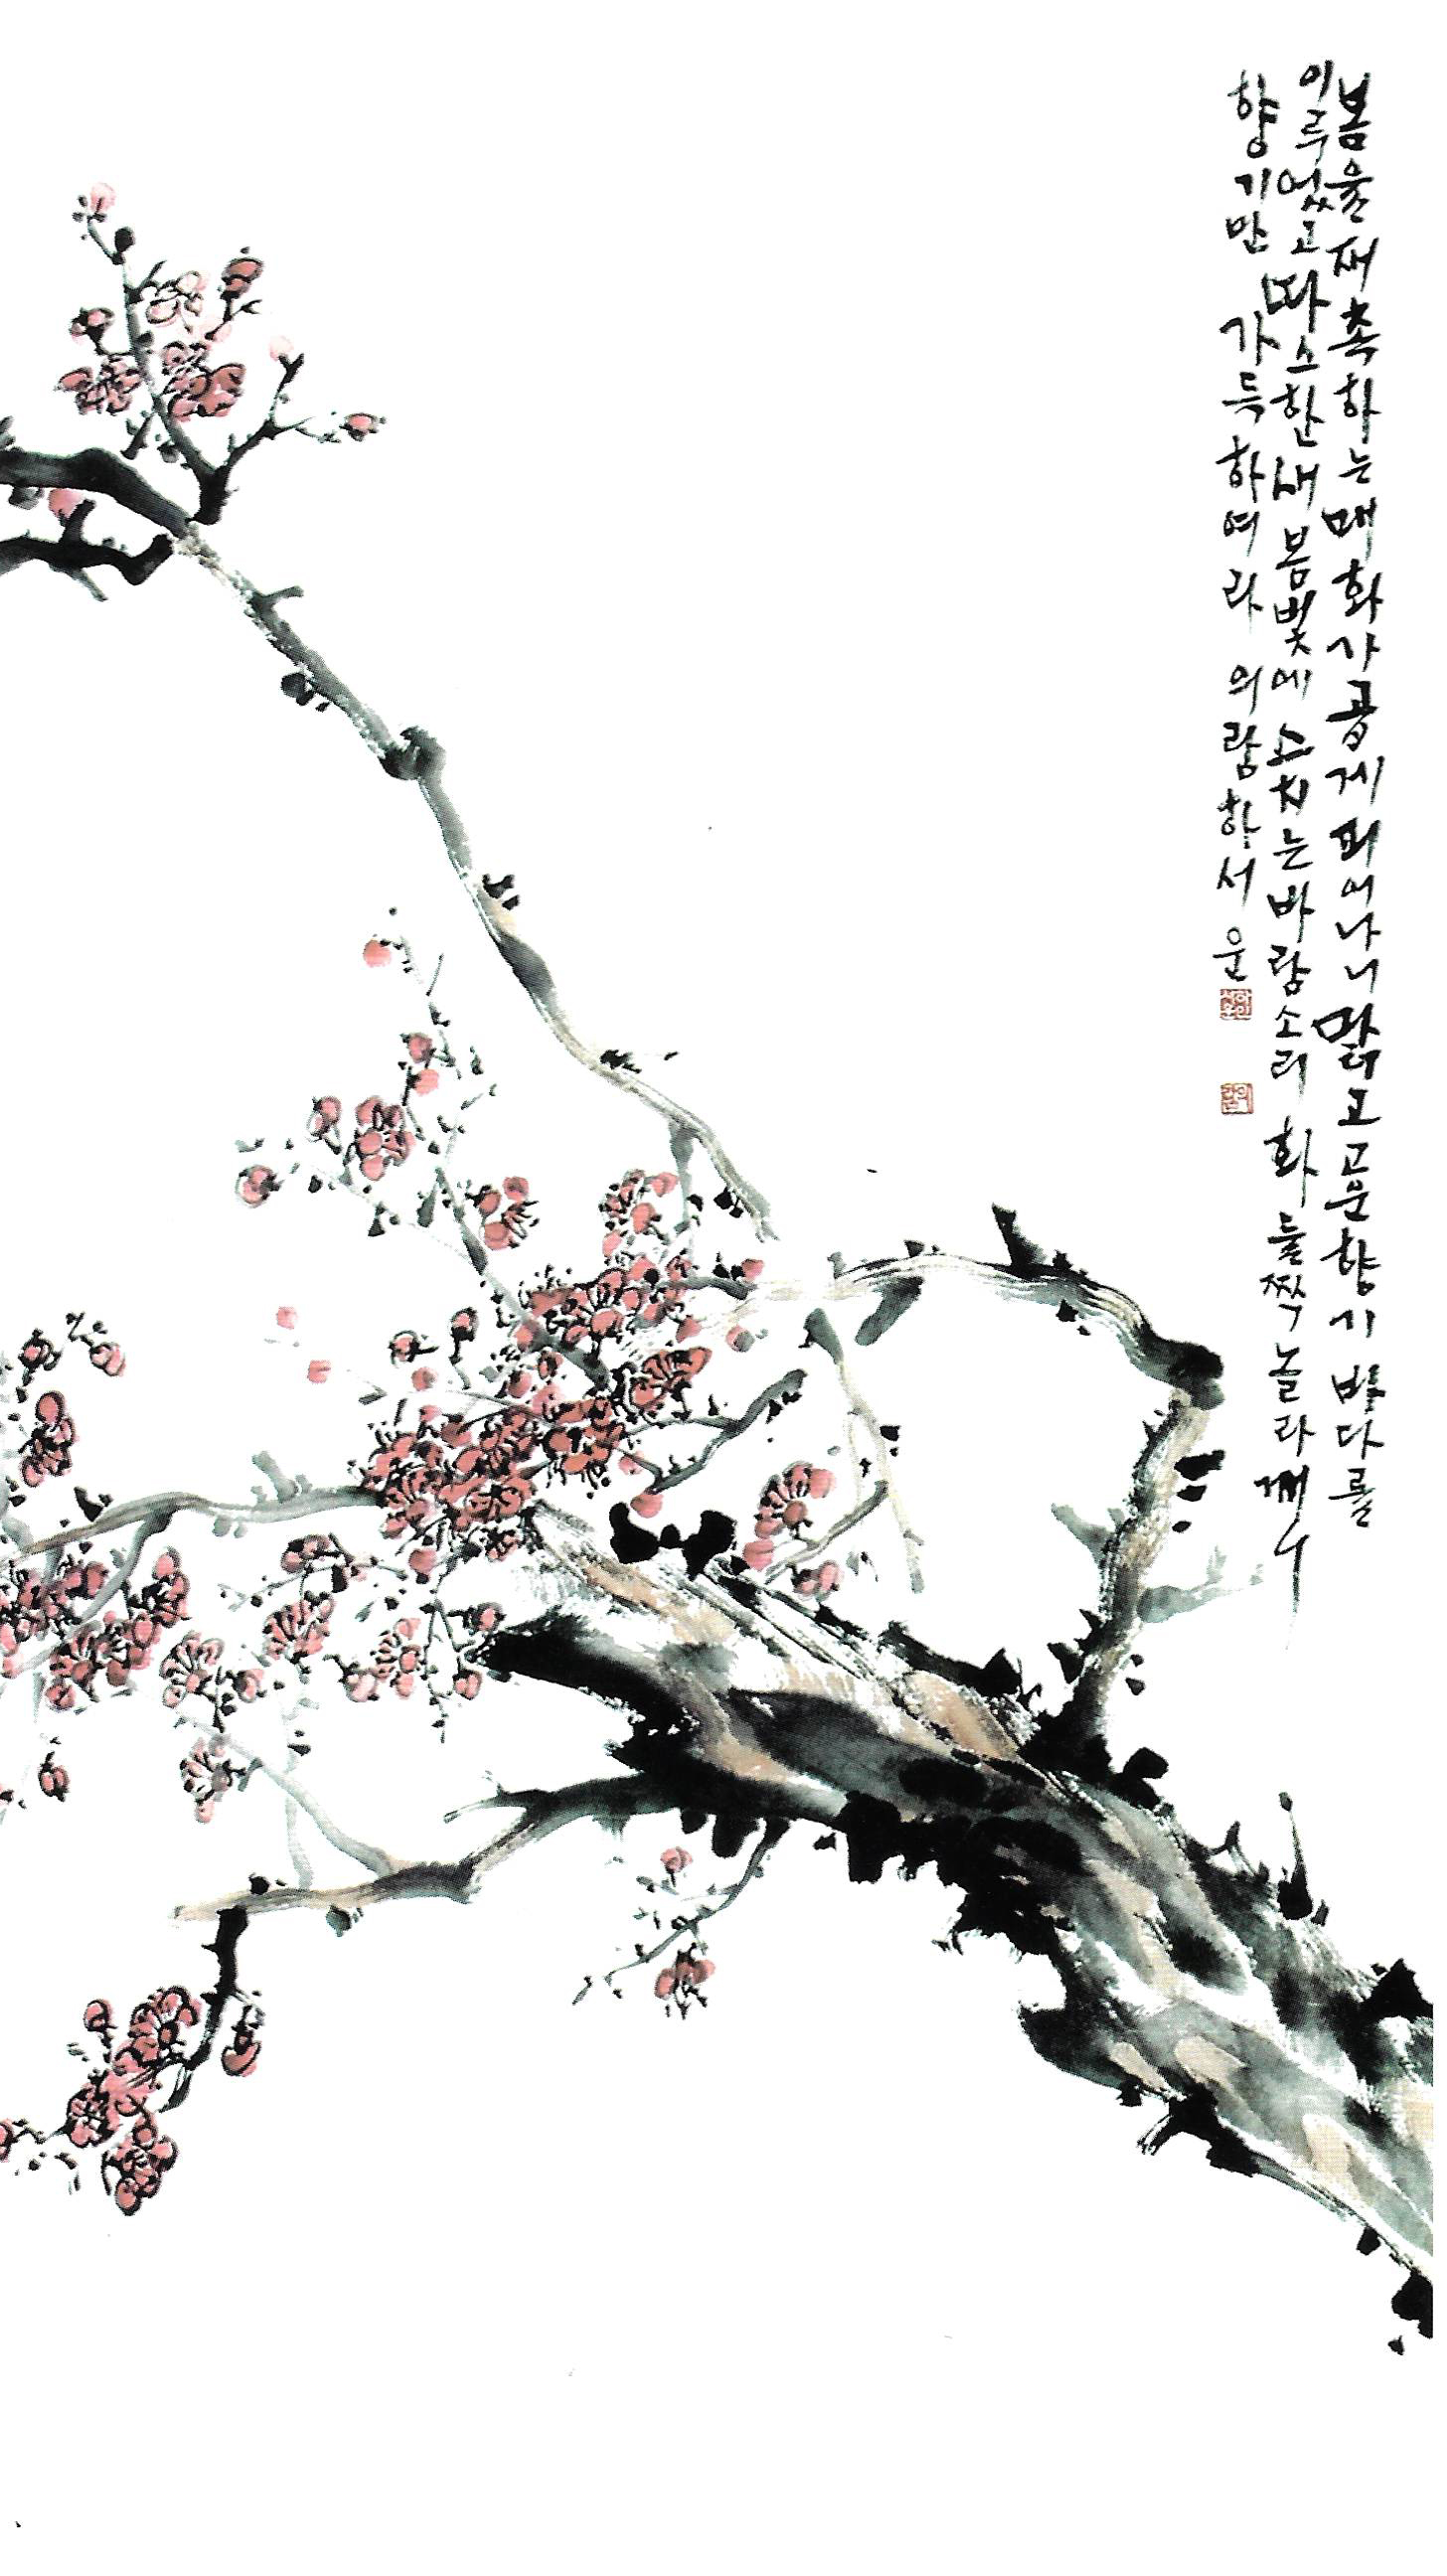 봄을 재촉하는 매화가 곱게 피어나니 맑고 고운 향기 바다를
이루었고 따스한 새 봄볕에 스치는 바람소리 화들짝 놀라 깨우
향기만 가득하여라 의람 하서운